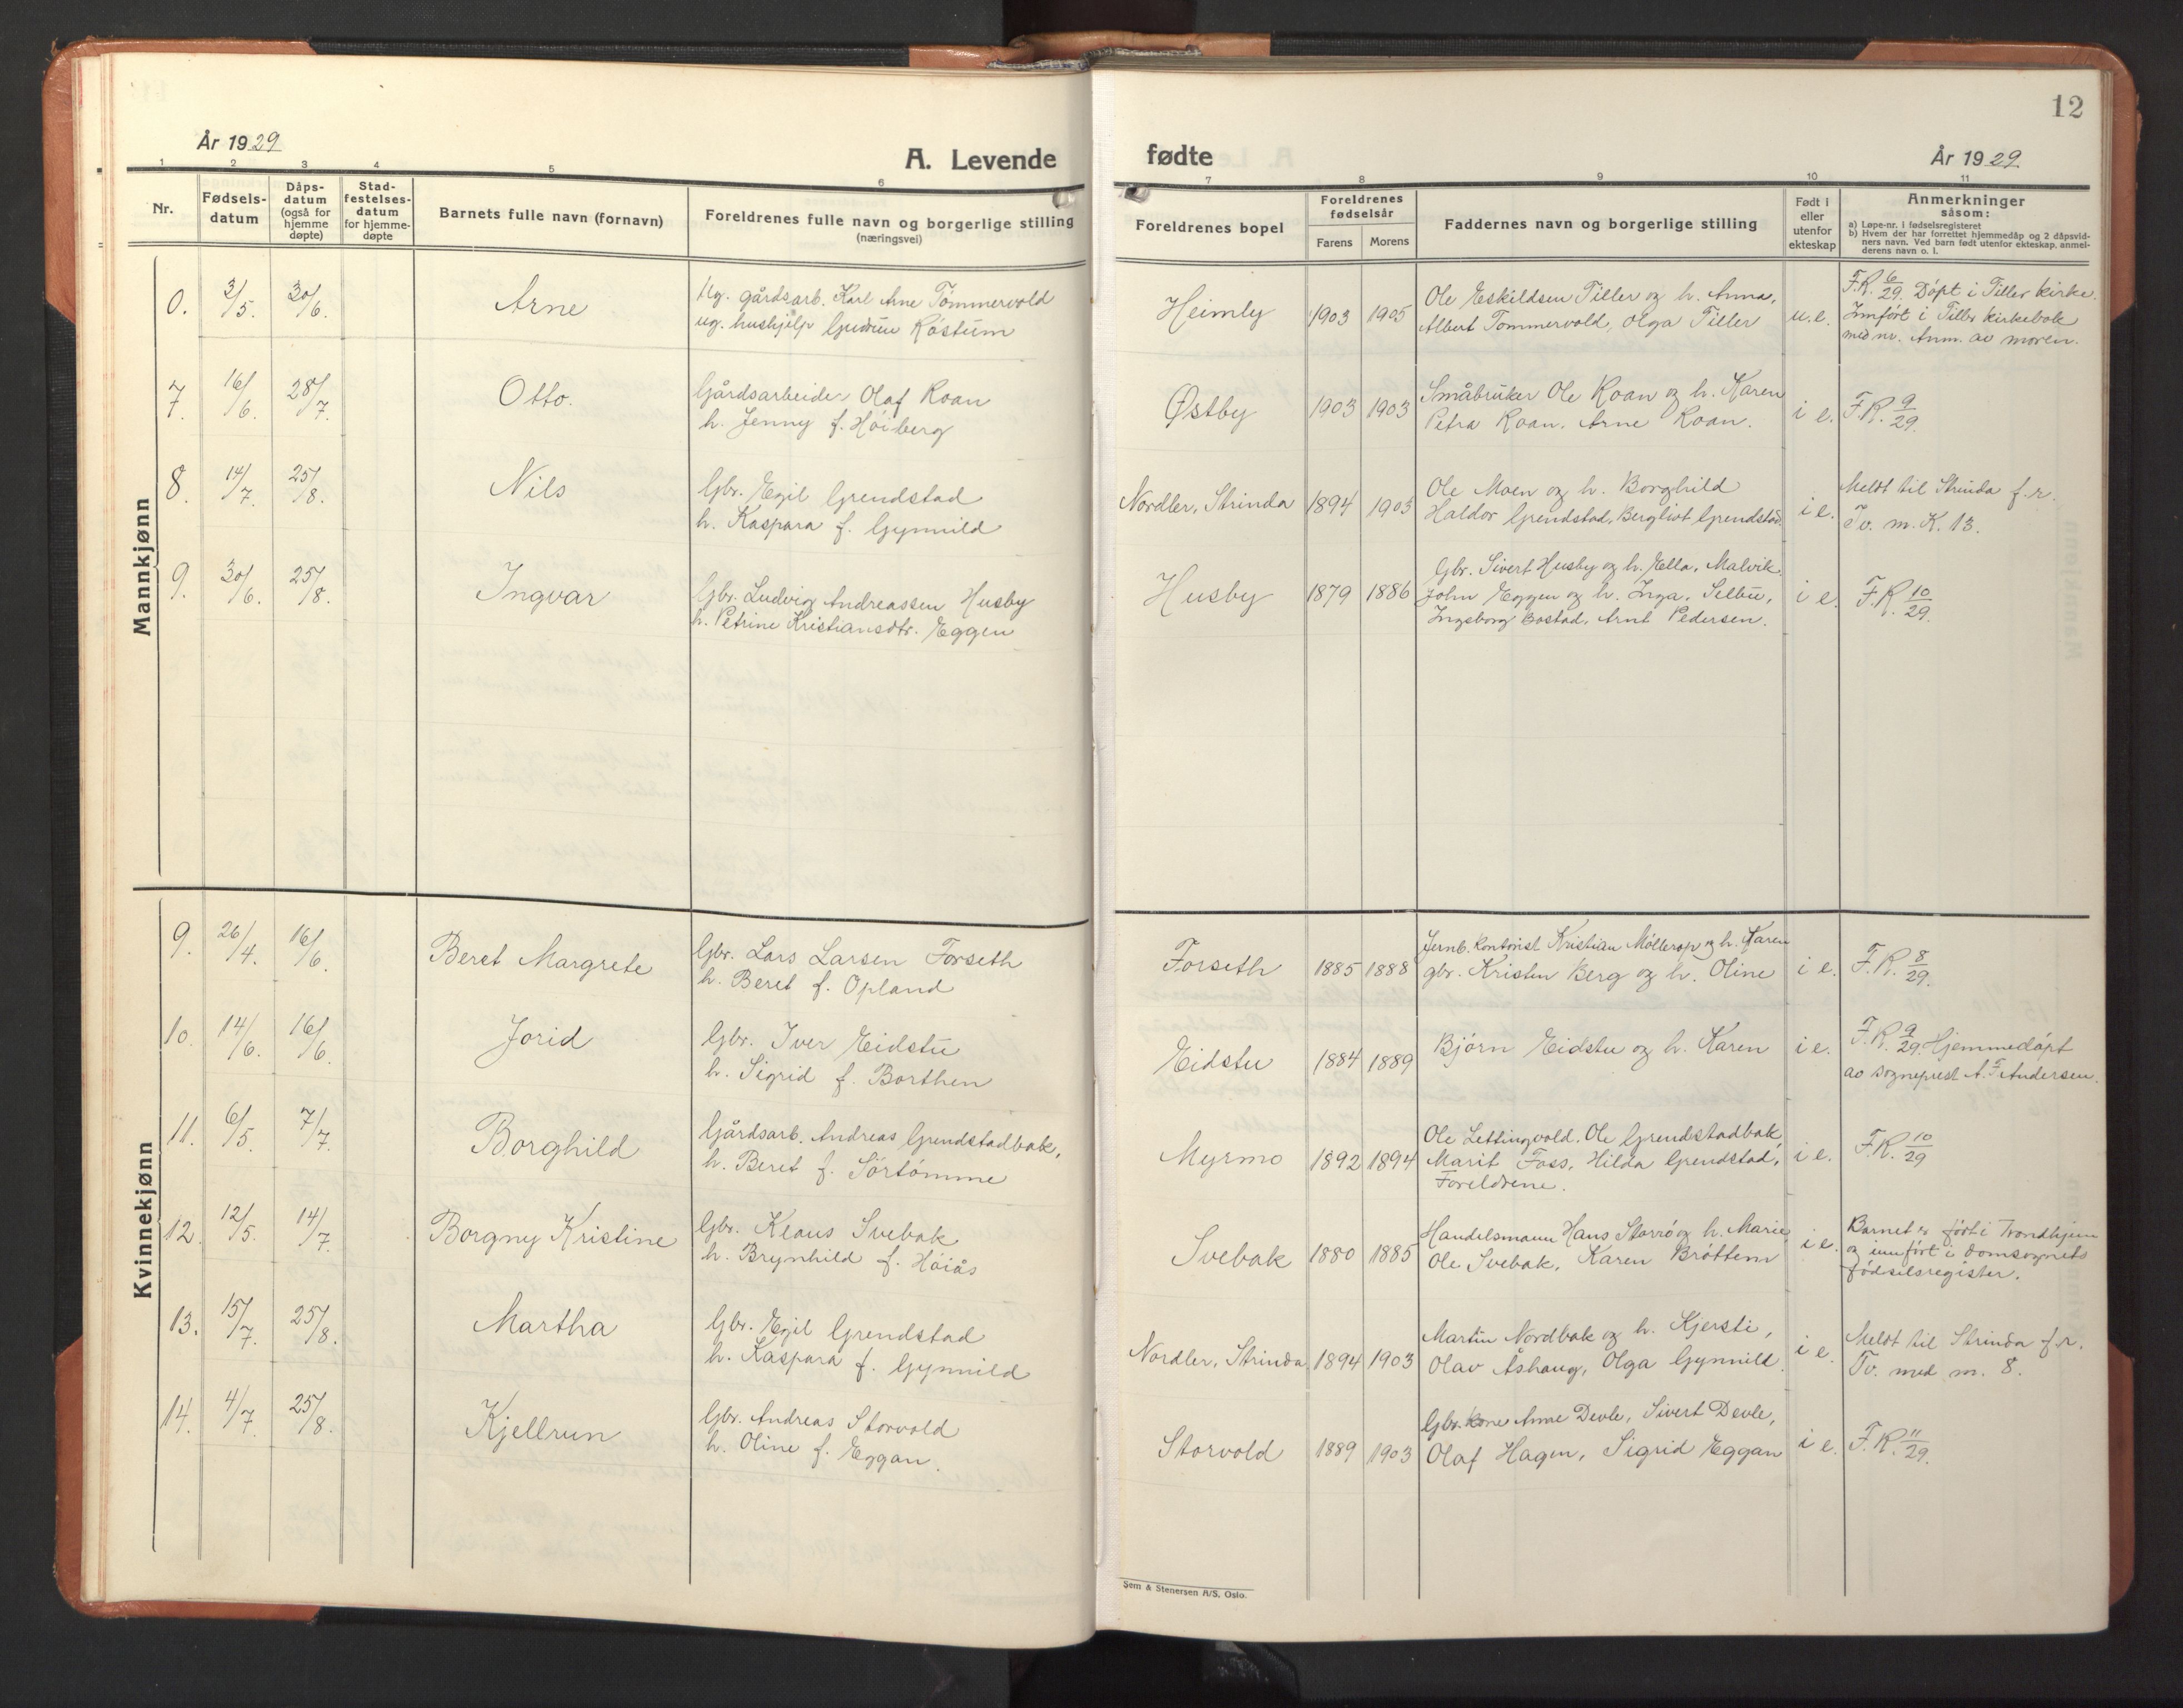 12
År 1929
A. Levende
fødte
År 1929
1 2 3 4 5 6 7 8 9 10 11
Nr.
Fødsels-
datum
Dåps-
datum
(også for
hjemme
døpte)
Stad-
festelses-
datum
for hjemme-
døpte
Barnets fulle navn (fornavn)
Foreldrenes fulle navn og borgerlige stilling
(næringsvei)
Foreldrenes bopel
Foreldrenes
fødselsår
Farens Morens
Faddernes navn og borgerlige stilling
Født i
eller
utenfor
ekteskap
Anmerkninger
såsom:
a) Løpe-nr. i fødselsregisteret
b) Hvem der har forrettet hjemmedåp og 2 dåpsvid-
ners navn. Ved barn født utenfor ekteskap, anmel-
derens navn o. l.
Mannkjønn
0. 3/5. 30/6. Arne
Ug. gårdsarb. Karl Arne Tømmervold
ug. hushjelp Gudrun Røstum
Heimly 1903 1905
Ole Eskildsen Tiller og h. Anna,
Albert Tømmervold, Olga Tiller
u.e.
F.R. 6/29. Døpt i Tiller kirke.
Innført i Tiller kirkebok
med nr. Anm. av moren.
7. 16/6. 28/7. Otto.
Gårdsarbeider Olaf Roan
h. Jenny f. Høiberg
Østby 1903 1903
Småbruker Ole Roan og h. Karen
Petra Roan, Arne Roan.
i e. F.R. 9/29.
8. 14/7. 25/8. Nils
Gbr. Egil Grendstad
h. Kaspara f. Gynnild
Nordler, Strinda 1894 1903
Ole Moen og h. Borghild
Haldor Grendstad, Bergliot Grendstad.
i e.
Meldt til Strinda f.r.
Tv. m. K. 13.
9. 30/6. 25/8. Ingvar
Gbr. Ludvig Andreassen Husby
h. Petrine Kristiansdtr. Eggen
Husby 1879 1886
Gbr. Sivert Husby og h. Ella, Malvik.
John Eggen og h. Inga, Selbu,
Ingeborg Bostad, Arnt Pedersen.
i e. F.R. 10/29.
Kvinnekjønn
9. 26/4. 16/6. Beret Margrete
Gbr. Lars Larsen Forseth
h. Beret f. Opland
Forseth 1885 1888
Jernb. kontorist Kristian Møllerop og h. Karen
gbr. Kristen Berg og h. Oline
i e. F.R. 8/29.
10. 14/6. 16/6. Jorid
Gbr. Iver Eidstu
h. Sigrid f. Borthen
Eidstu 1884 1889
Bjørn Eidstu og h. Karen
i e.
F.R. 9/29. Hjemmedøpt
av sogneprest A. F. Andersen.
11. 6/5. 7/7. Borghild
Gårdsarb. Andreas Grendstadbak,
h. Beret f. Sørtømme
Myrmo 1892 1894
Ole Lettingvold. Ole Grendstadbak,
Marit Foss, Hilda Grendstad,
Foreldrene.
i e. F.R. 10/29
12. 12/5. 14/7. Borgny Kristine
Gbr. Klaus Svebak
h. Brynhild f. Høiås
Svebak 1880 1885
Handelsmann Hans Storrø og h. Marie,
Ole Svebak, Karen Brøttem
i e.
Barnet er født i Trondhjem
og innført i domsognets
fødselsregister.
13. 15/7. 25/8. Martha
Gbr. Egil Grendstad
h. Kaspara f. Gynnild
Nordler, Strinda 1894 1903
Martin Nordbak og h. Kjersti,
Olav Åshaug, Olga Gynnild.
i e.
Meldt til Strinda f.r.
Tv. med m. 8.
14. 4/7. 25/8. Kjellrun
Gbr. Andreas Storvold
h. Oline f. Eggan.
Storvold 1889 1903
Gbr. kone Anne Devle, Sivert Devle,
Olaf Hagen, Sigrid Eggan
i e. F.R. 11/29.
Sem & Stenersen A/S, Oslo.